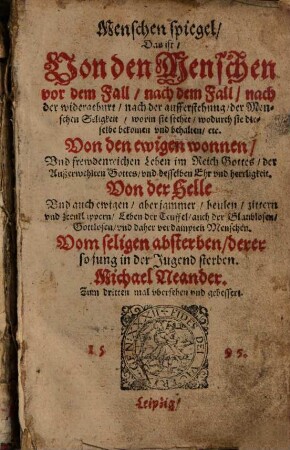 Menschen spiegel/
Das ist/
Von den Menschen
vor dem Fall / nach dem Fall / nach
der widergeburt / nach der aufferstehung / der Men-
schen Seligkeit / worin sie stehet / wodurch sie die-
selbe bekomen und behalten / etc.
Von den ewigen wonnen /
Vnd frewdenreichen Leben im Reich Gottes / der
Außerwehlten Gottes / vnd desselben Ehr vnd herrligkeit.
Von der Helle
Vnd auch ewigen / aber jammer / heulen / zittern
vnd Leben der Teuffel / auch der Glaublosen /
Gottlosen / vnd daher verdampten Menschen.
Vom seligen absterben / derer
so jung in der Jugend sterben.
Michael Neander.
Zum dritten mal vbersehen vnd gebessert.
15 95.
FIDES DEI
Leipzig /